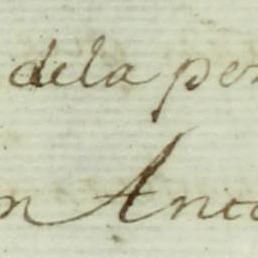 dela per
n Anto